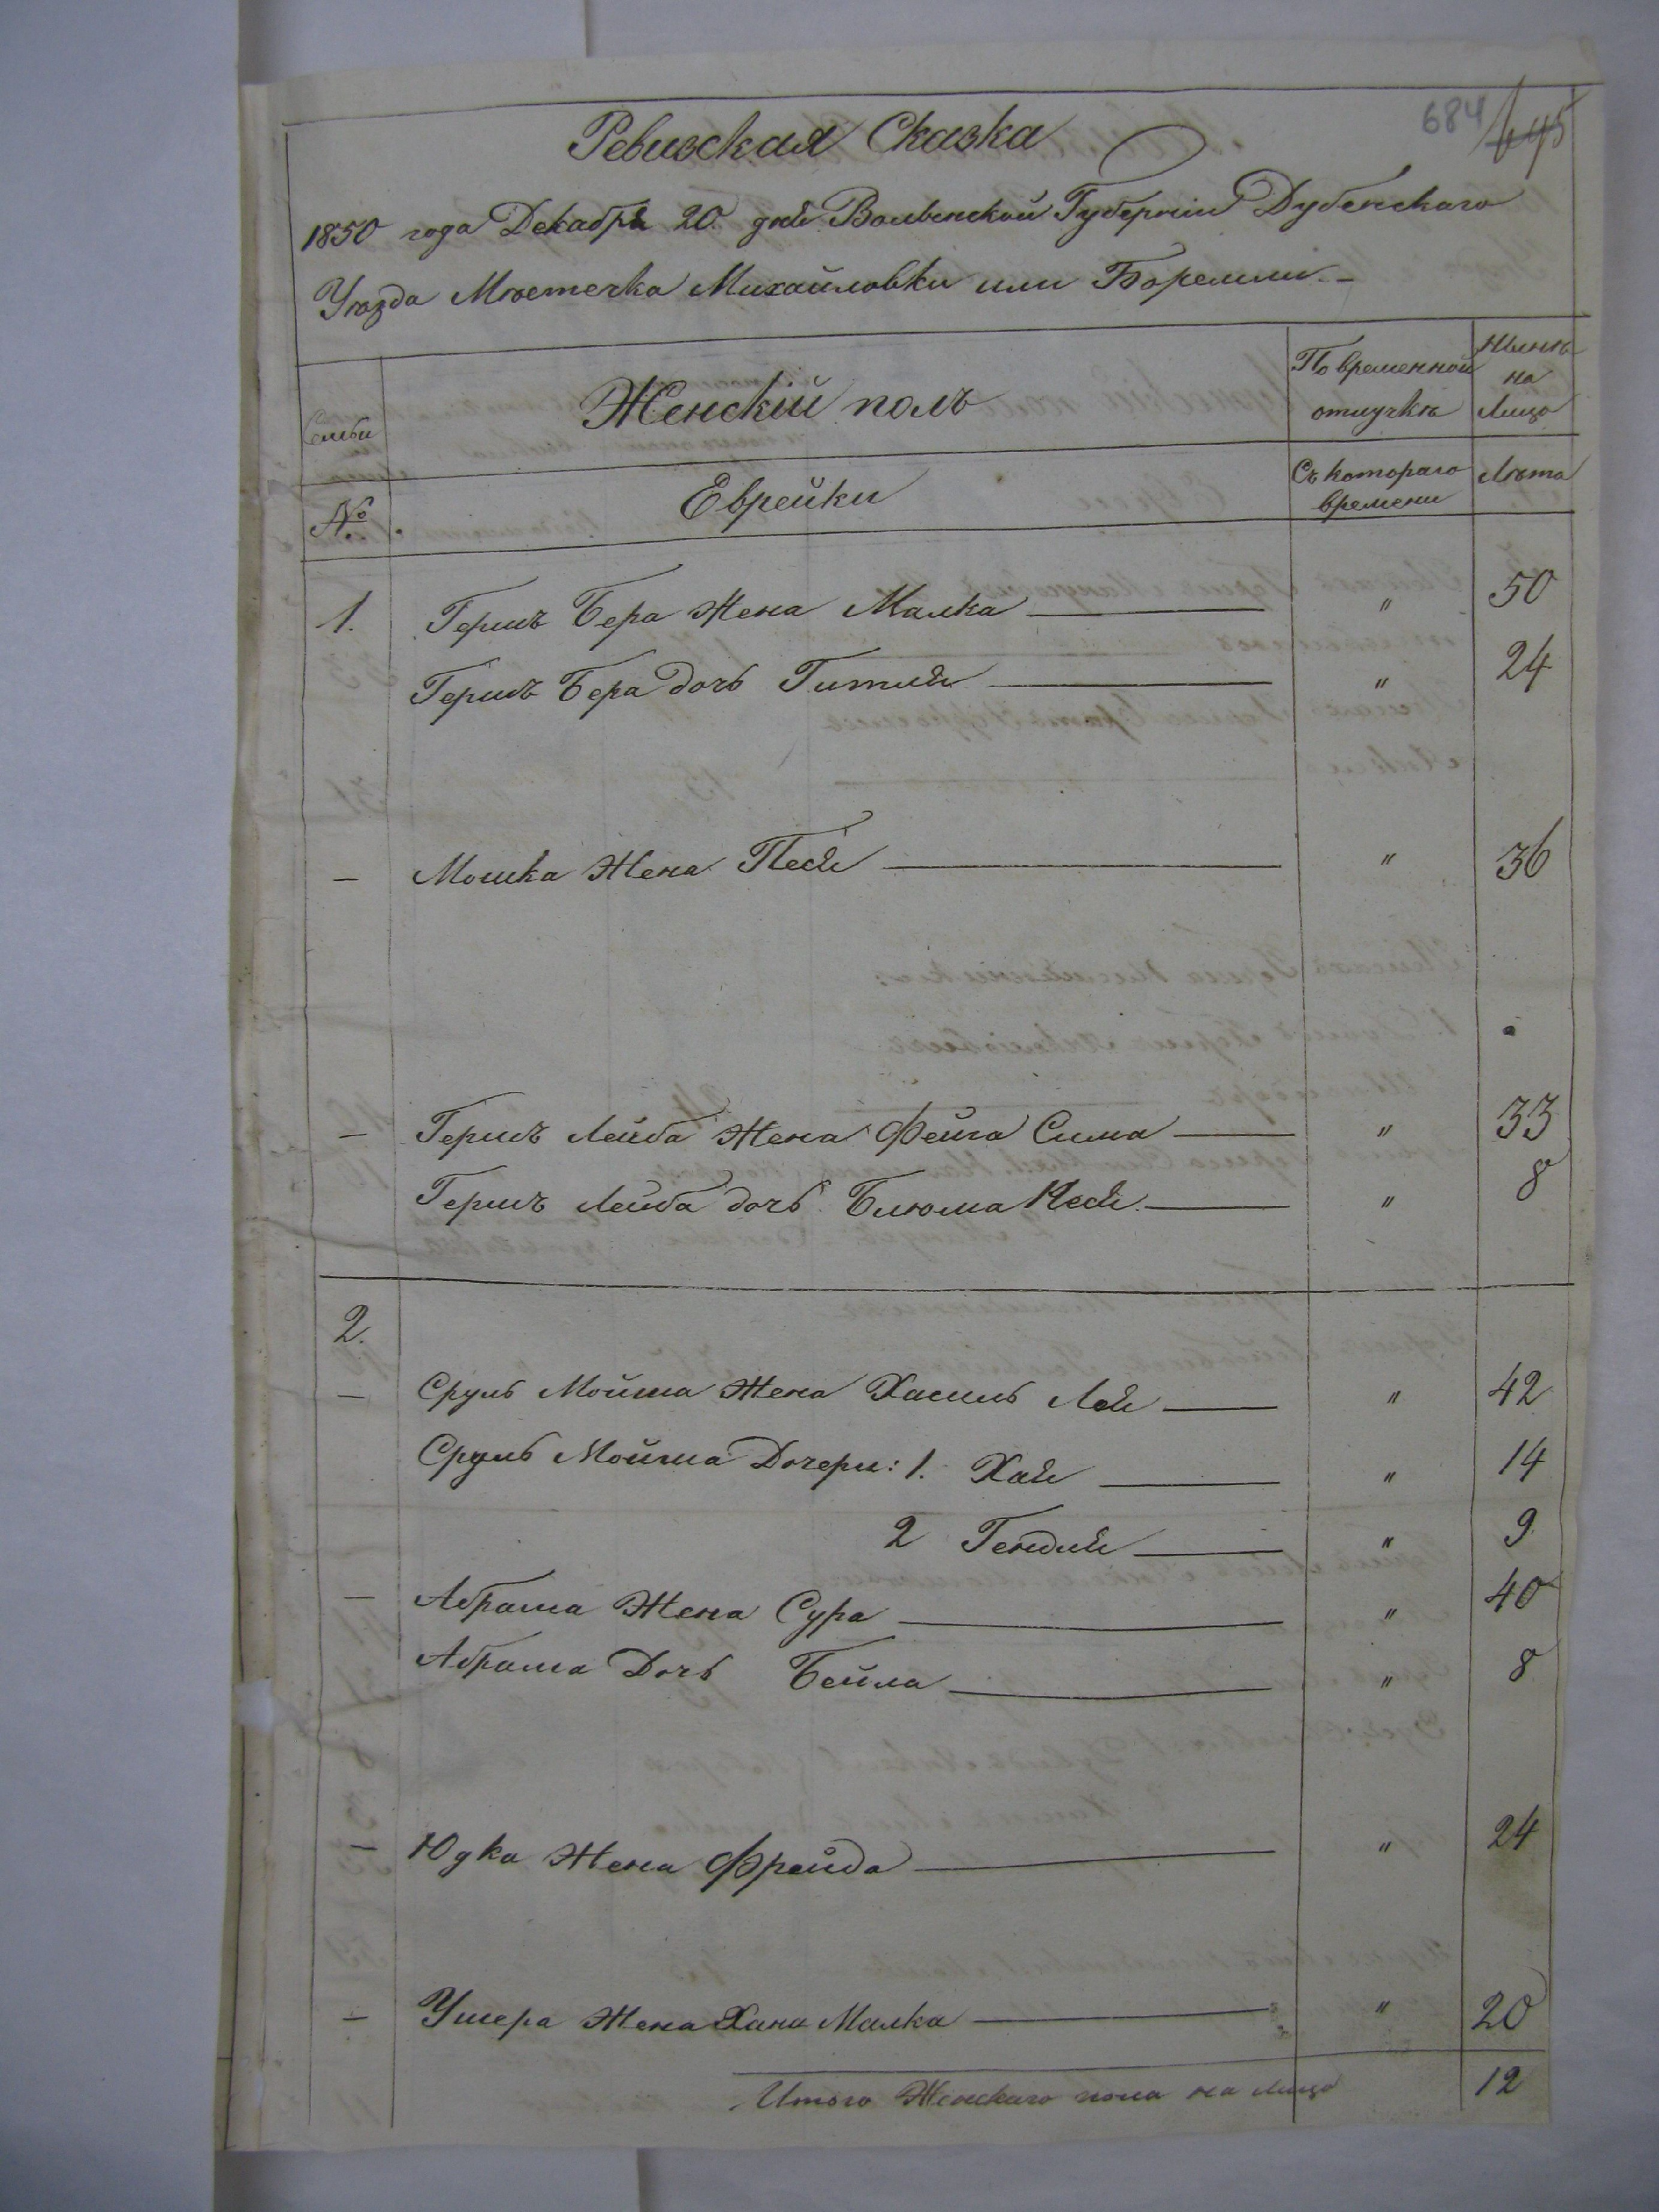 684 645
Ревизская Сказка
1850 года Декабря 20 дня Волынской Губерніи Дубенскаго
Уѣзда Мѣстечка Михайловки или Боремли
Семьи
Женскій полъ
По временной отлучкѣ
Нынѣ на Лицо
№
Еврейки
Съ котораго времени
Лѣта
1. Гершъ Бера Жена Малка " 50
Гершъ Бера дочь Гитля " 24
— Мошка Жена Песя " 36
— Гершъ Лейба Жена Фейга Сима " 33
Гершъ Лейба дочь Блюма Песя " 8
2.
— Сруль Мойша Жена Хасиль Лея " 42
Сруль Мойша Дочери: 1. Хая " 14
2 Гендля " 9
— Абрама Жена Сура " 40
Абрама Дочь Бейла " 8
— Юдка Жена Фрейда " 24
— Ушера Жена Хана Малка " 20
Итого Женскаго пола на лицо 12